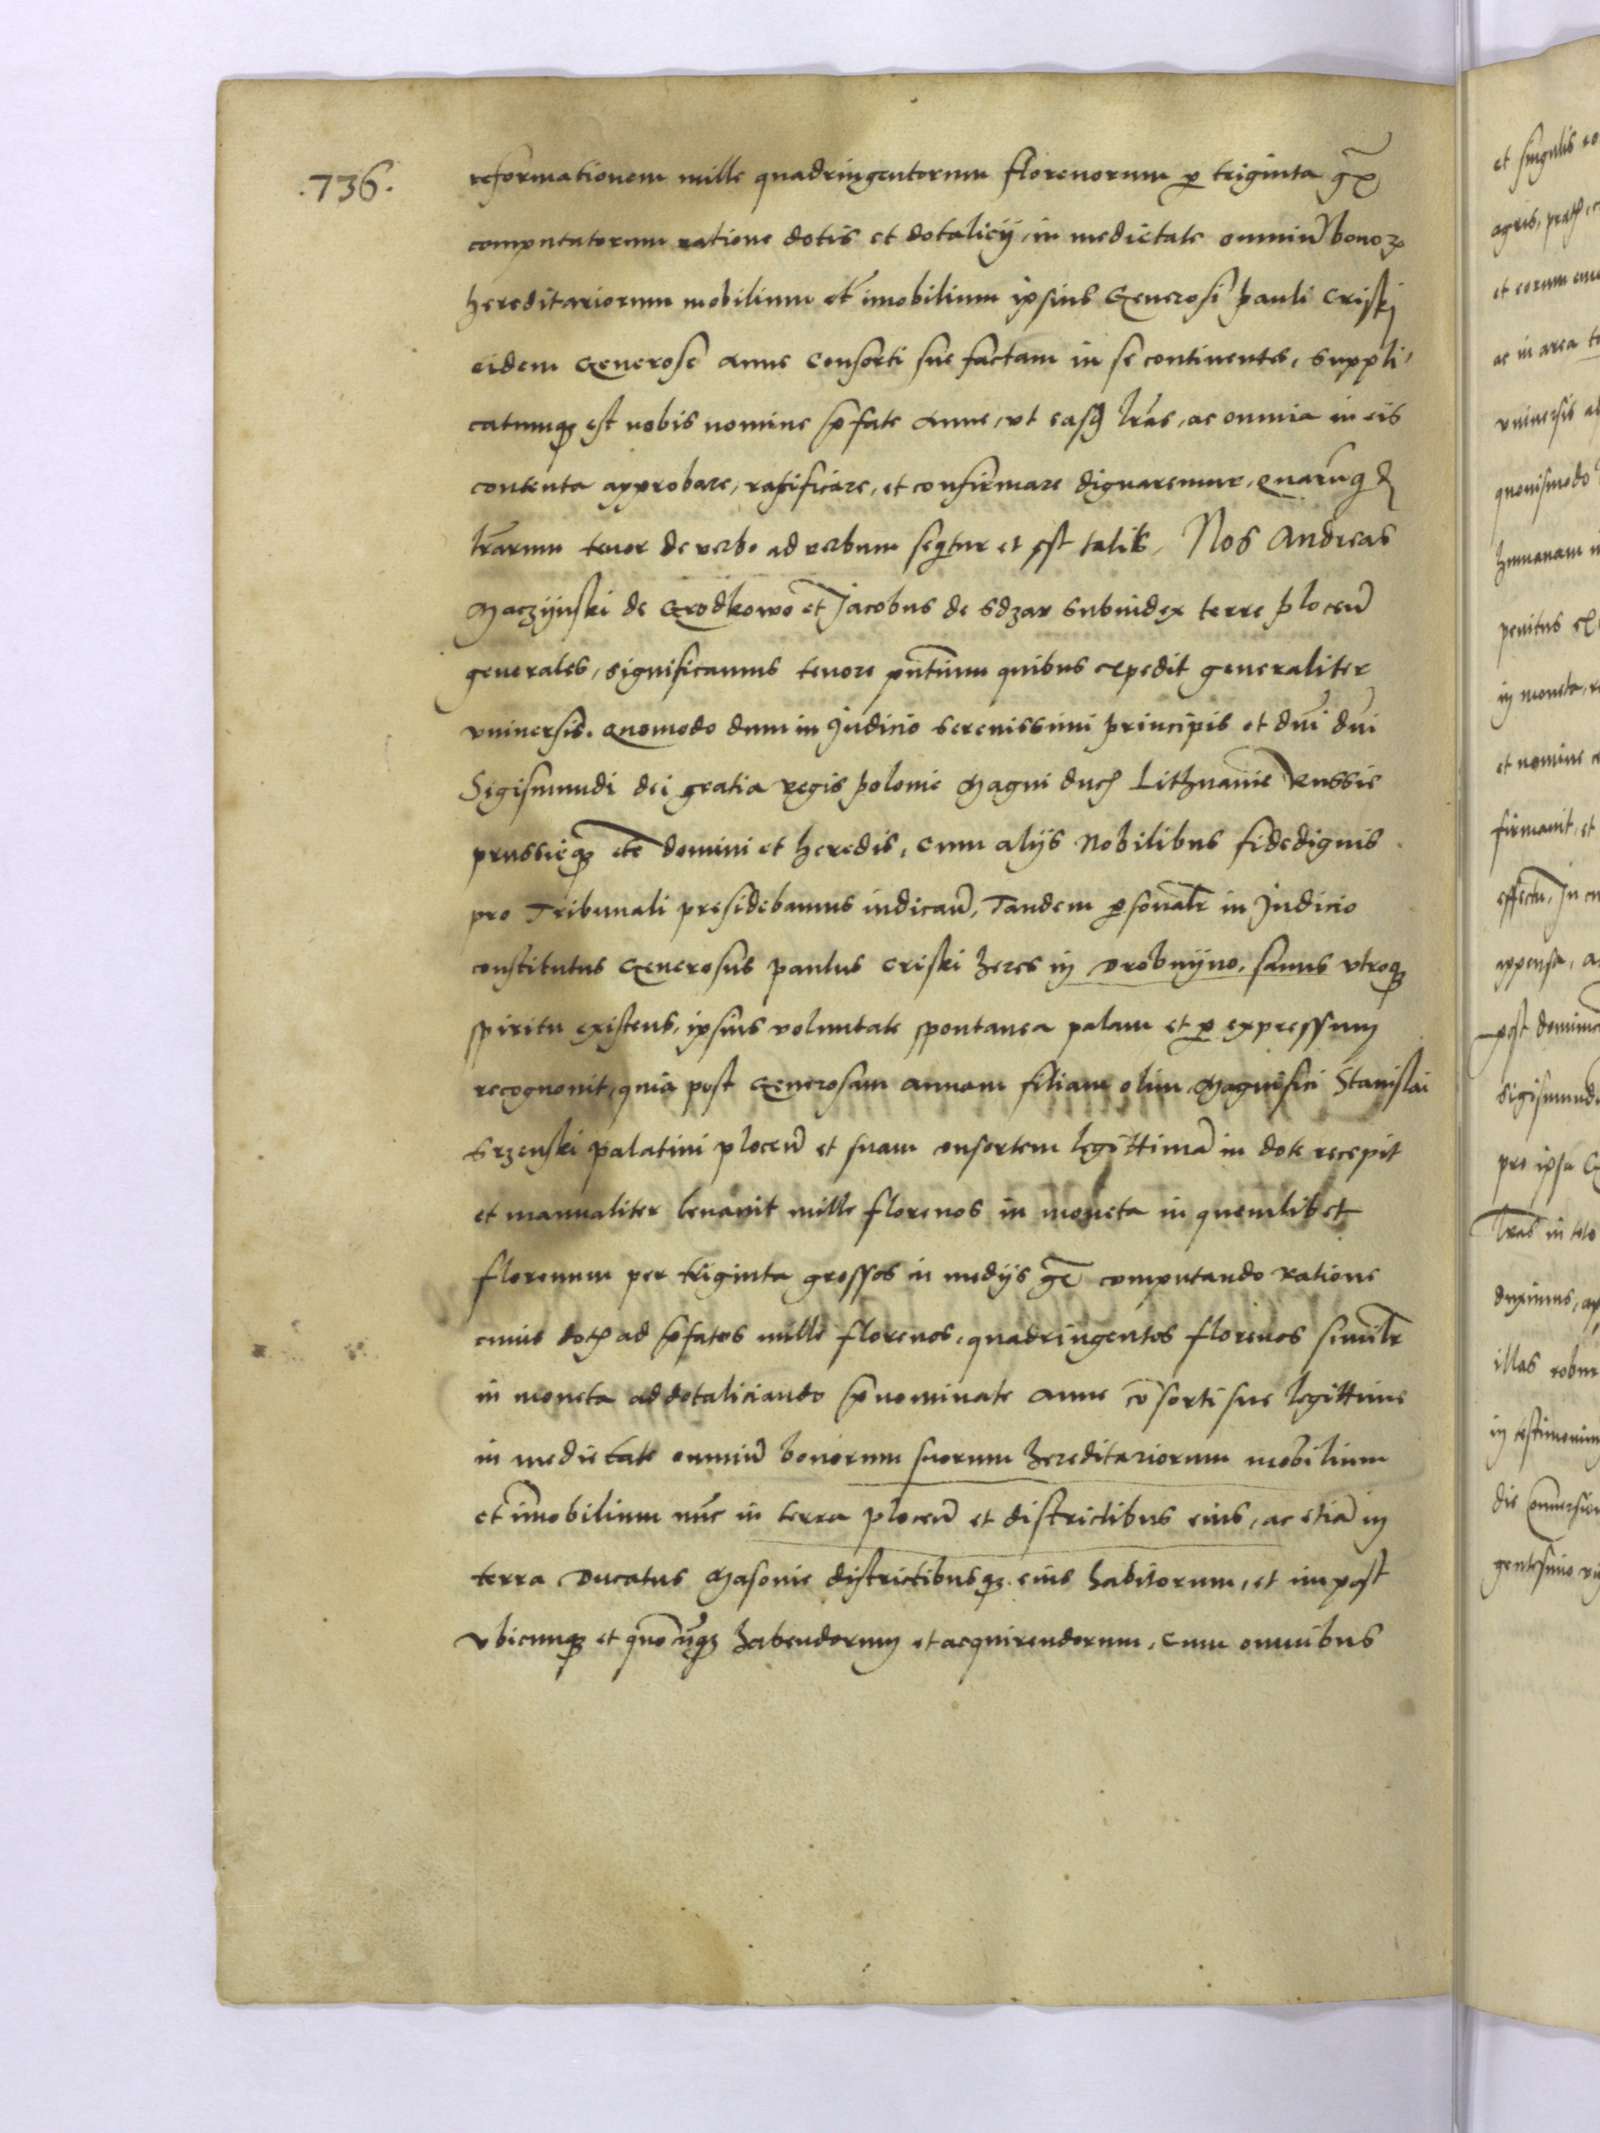 .736.
reformationem mille quadringentorum florenorum p triginta gr
computatorum ratione dotis et dotalicij, in medietate omniu bonoꝝ
hereditariorum mobilium et imobilium ipsius Generosi pauli Criski
eidem Generose Anne Consorti sue factam in se continentes, suppli,
catumqꝫ est nobis nomine pfate Anne, vt easd lras, ac omnia in eis
contenta approbare, ratificare, et confirmare dignaremur, Quarumq d
lrarum tenor de verbo ad verbum sequitur et est talis, Nos Andreas
Maczijnski de Grodkowo et Jacobus de Sdzar Subiudex terre plocen
generales, significamus tenore pntium quibus expedit generaliter
vniuersis. Quomodo dum in Judicio Serenissimi principis et dni dni
Sigismundi dei gratia regis polonie Magni ducis Lithuanie Russie
prussieqꝫ etc domini et heredis, cum alijs Nobilibus fidedignis
pro Tribunali presidebamus iudican, Tandem psonalr in Judicio
constitutus Generosus paulus Criski heres in Drobnijno, sanus vtroqꝫ
spiritu existens, ipsius voluntate spontanea palam et p expressum
recognouit, quia post Generosam Annam filiam olim Magnifici Stanislai
Srzenski palatini plocen et suam consortem legittima in dote recepit
et manualiter leuauit mille florenos in moneta in quemlibet
florenum per triginta grossos in medijs gr computando ratione
cuius dotis ad pfatos mille florenos, quadringentos florenos similr
in moneta addotaliciando pnominate Anne cosorti sue legittime
in medietate omniu bonorum suorum hereditariorum mobilium
et imobilium nunc in terra plocen et districtibus eius, ac etia in
terra Ducatus Masouie districtibusqꝫ eius habitorum, et impost
vbicunqꝫ et quocunqꝫ habendorum et acquirendorum, cum omnibus